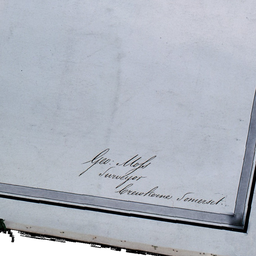 Geo: Moss
Surveyor
Crewkerne Somerset.